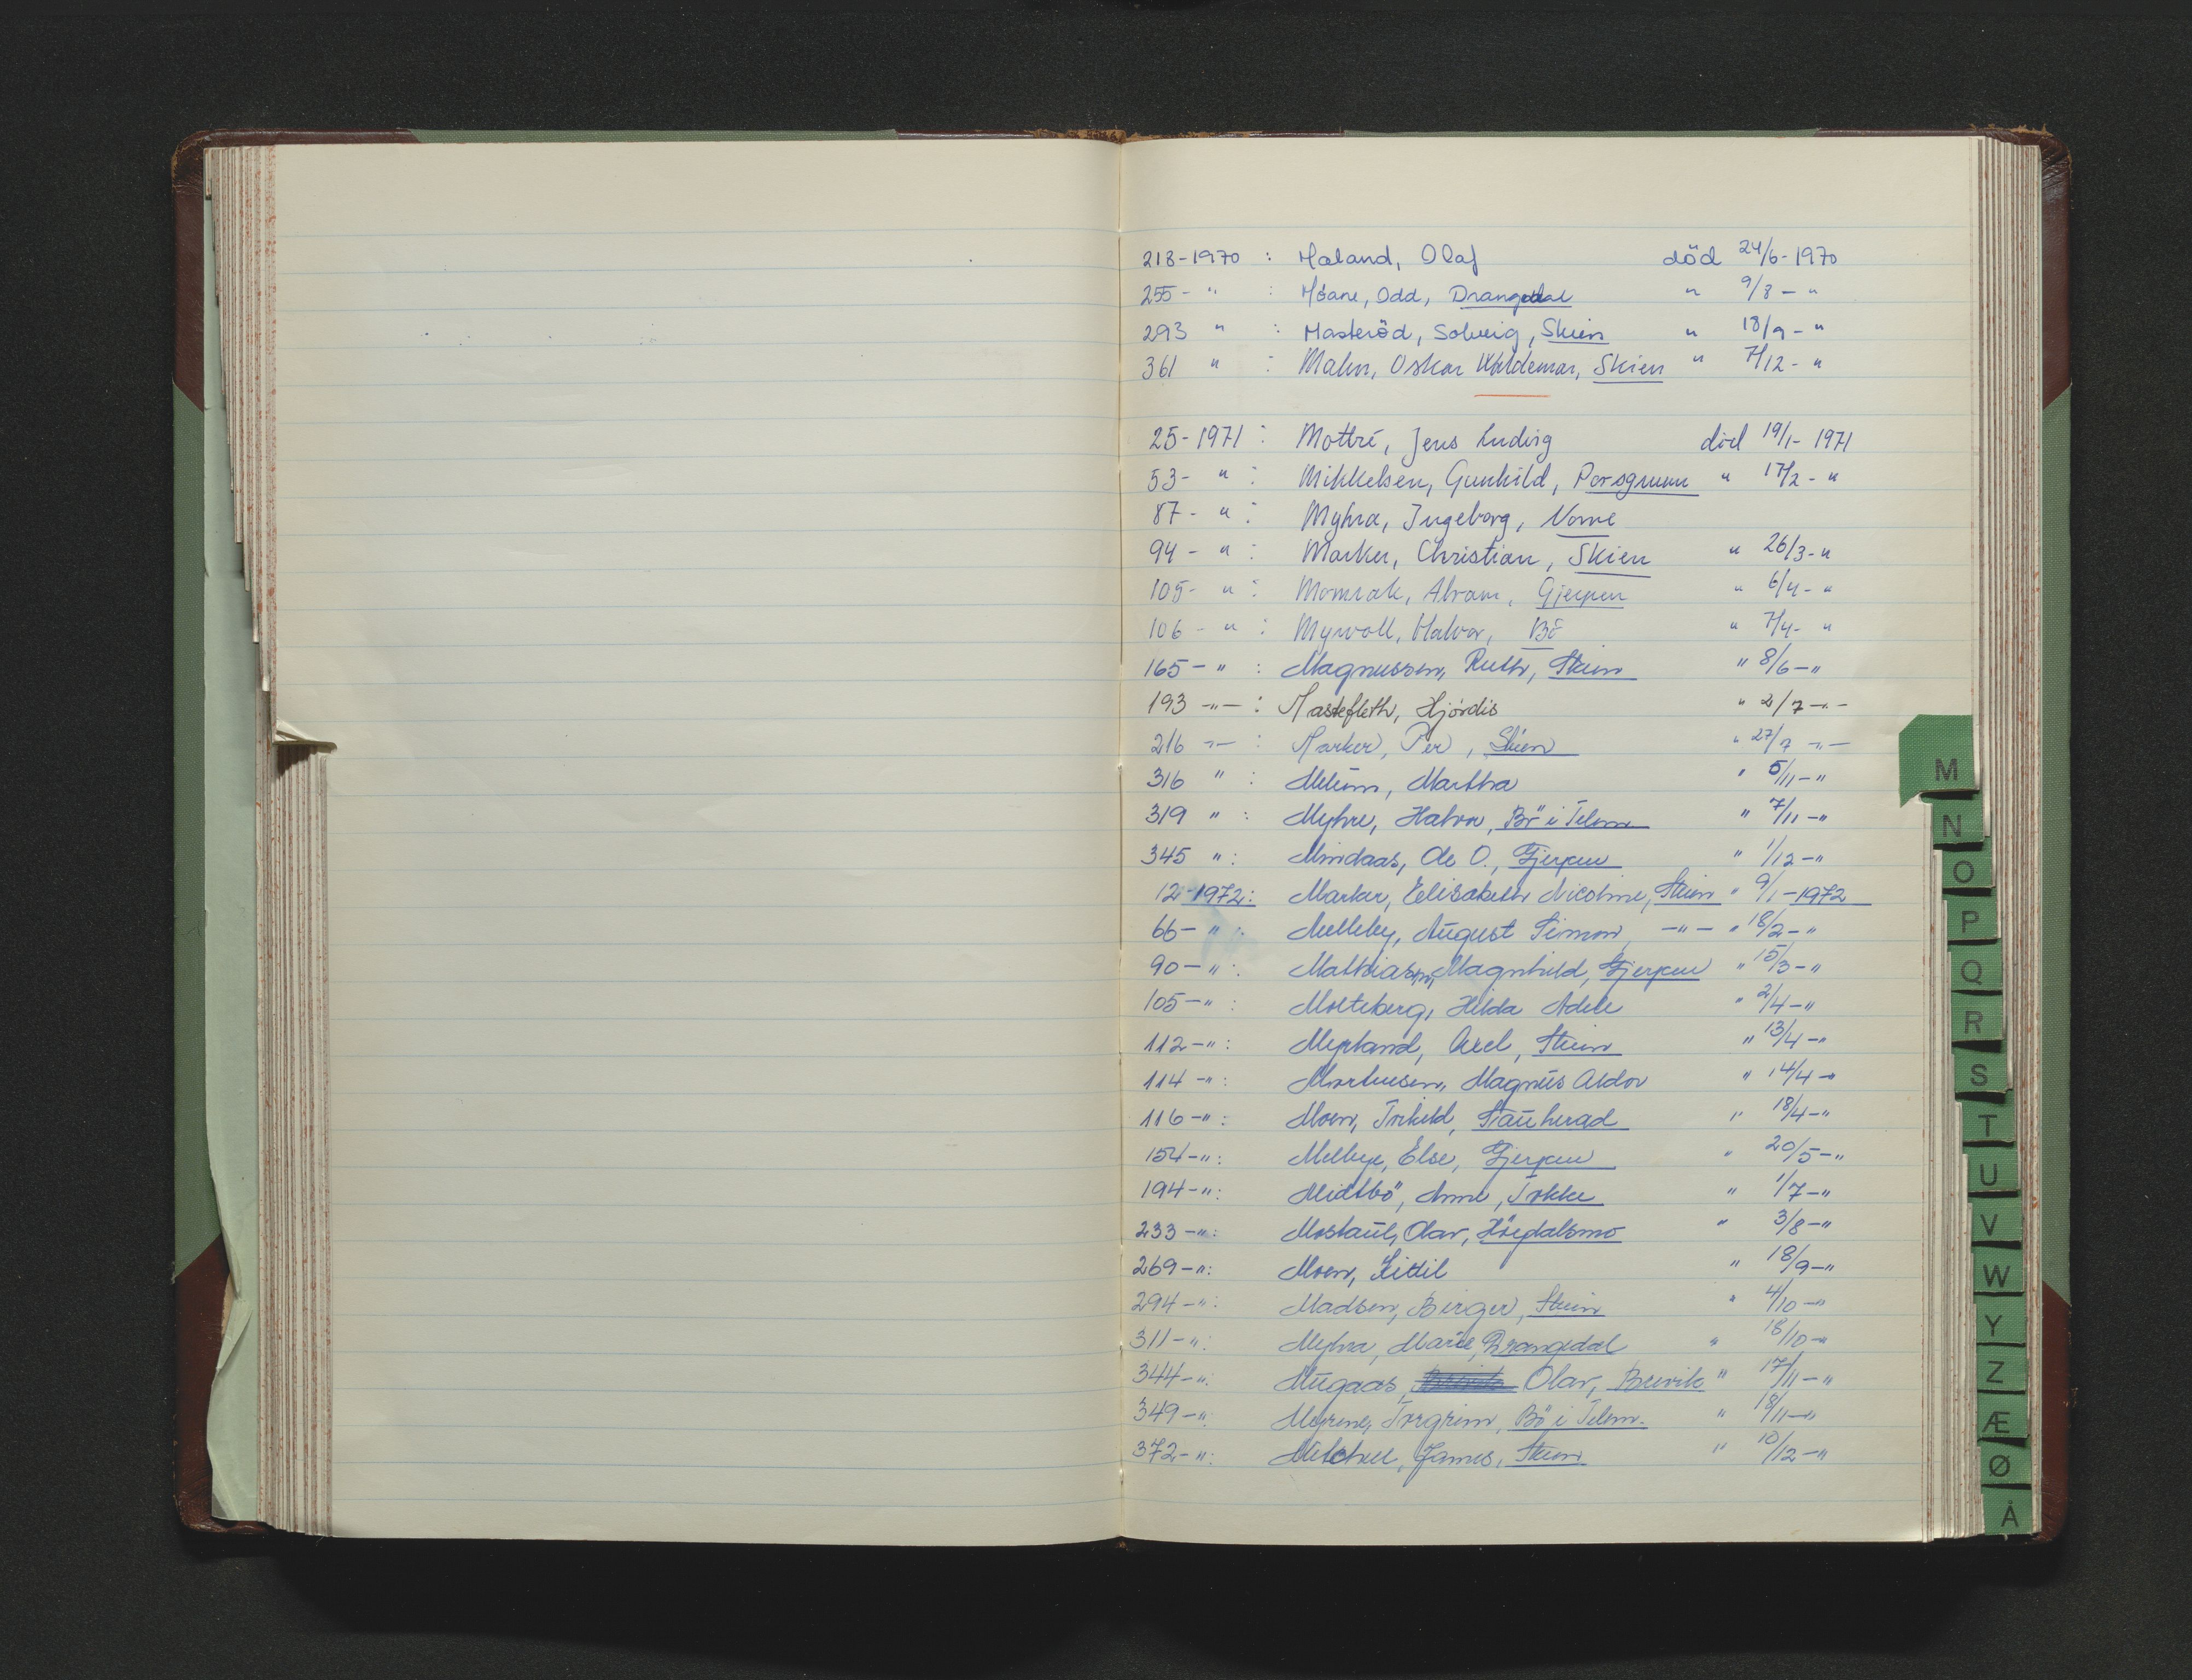 218-1970 : Maland, Olaf död 24/6-1970
255- " : Möane, Odd, Drangedal " 9/8 - "
293 " : Masteröd, Solveig, Skien " 18/9 - "
361 " : Malm, Oskar Waldemar, Skien " 7/12 - "
25-1971 : Mottré, Jens Ludvig död 19/1- 1971
53- " : Mikkelsen, Gunhild, Porsgrunn " 17/2 - "
87- " : Myhra, Ingeborg, Nome
94 - " : Marker, Christian, Skien " 26/3- "
105- " : Momrak, Abram, Gjerpen " 6/4- "
106 - " : Myrvoll, Halvor, Bö " 7/4- "
165 - " : Magnussen, Ruth, Skien " 8/6 - "
193 -"- : Mastefleth, Hjördis " 2/7 -"-
216 -"- : Marker, Per, Skien " 27/7 -"-
316 " : Melum, Martha " 5/11 - "
319 " : Myhre, Halvor, Bö i Telem. " 7/11 - "
345 " : Mindaas, Ole O., Gjerpen " 1/12 - "
12-1972: Marker, Elisabeth Nicoline, Skien " 9/1 - 1972
66- " : Melleby, August Simon, -"- " 18/2 - "
90 - " : Mathiassen, Magnhild, Gjerpen " 15/3 - "
105 - " : Molteberg, Hilda Adele " 2/4 - "
112 - " : Myrland, Axel, Skien " 13/4 - "
114 - " : Marthinsen, Magnus Aldor " 14/4 - "
116 - " : Moen, Torkild, Sauherad " 18/4 - "
154 - " : Melbye, Else, Gjerpen " 20/5 - "
194 - " : Midtbö, Anne, Tokke " 1/7 - "
233 - " : Mostaul, Olav, Höydalsmo " 3/8 - "
269 - " : Moen, Kittil " 18/9 - "
294 - " : Madsen, Birger, Skien " 4/10 - "
311 - " : Myhra, Marie, Drangedal " 18/10 - "
344 - " : Mugaas, Olav, Brevik " 17/11 - "
349 - " : Myrene, Torgrim, Bö i Telem. " 18/11 - "
372 - " : Mitchell, James, Skien " 10/12 - "
M
N
O
P
Q
R
S
T
U
V
W
Y
Z
Æ
Ø
Å